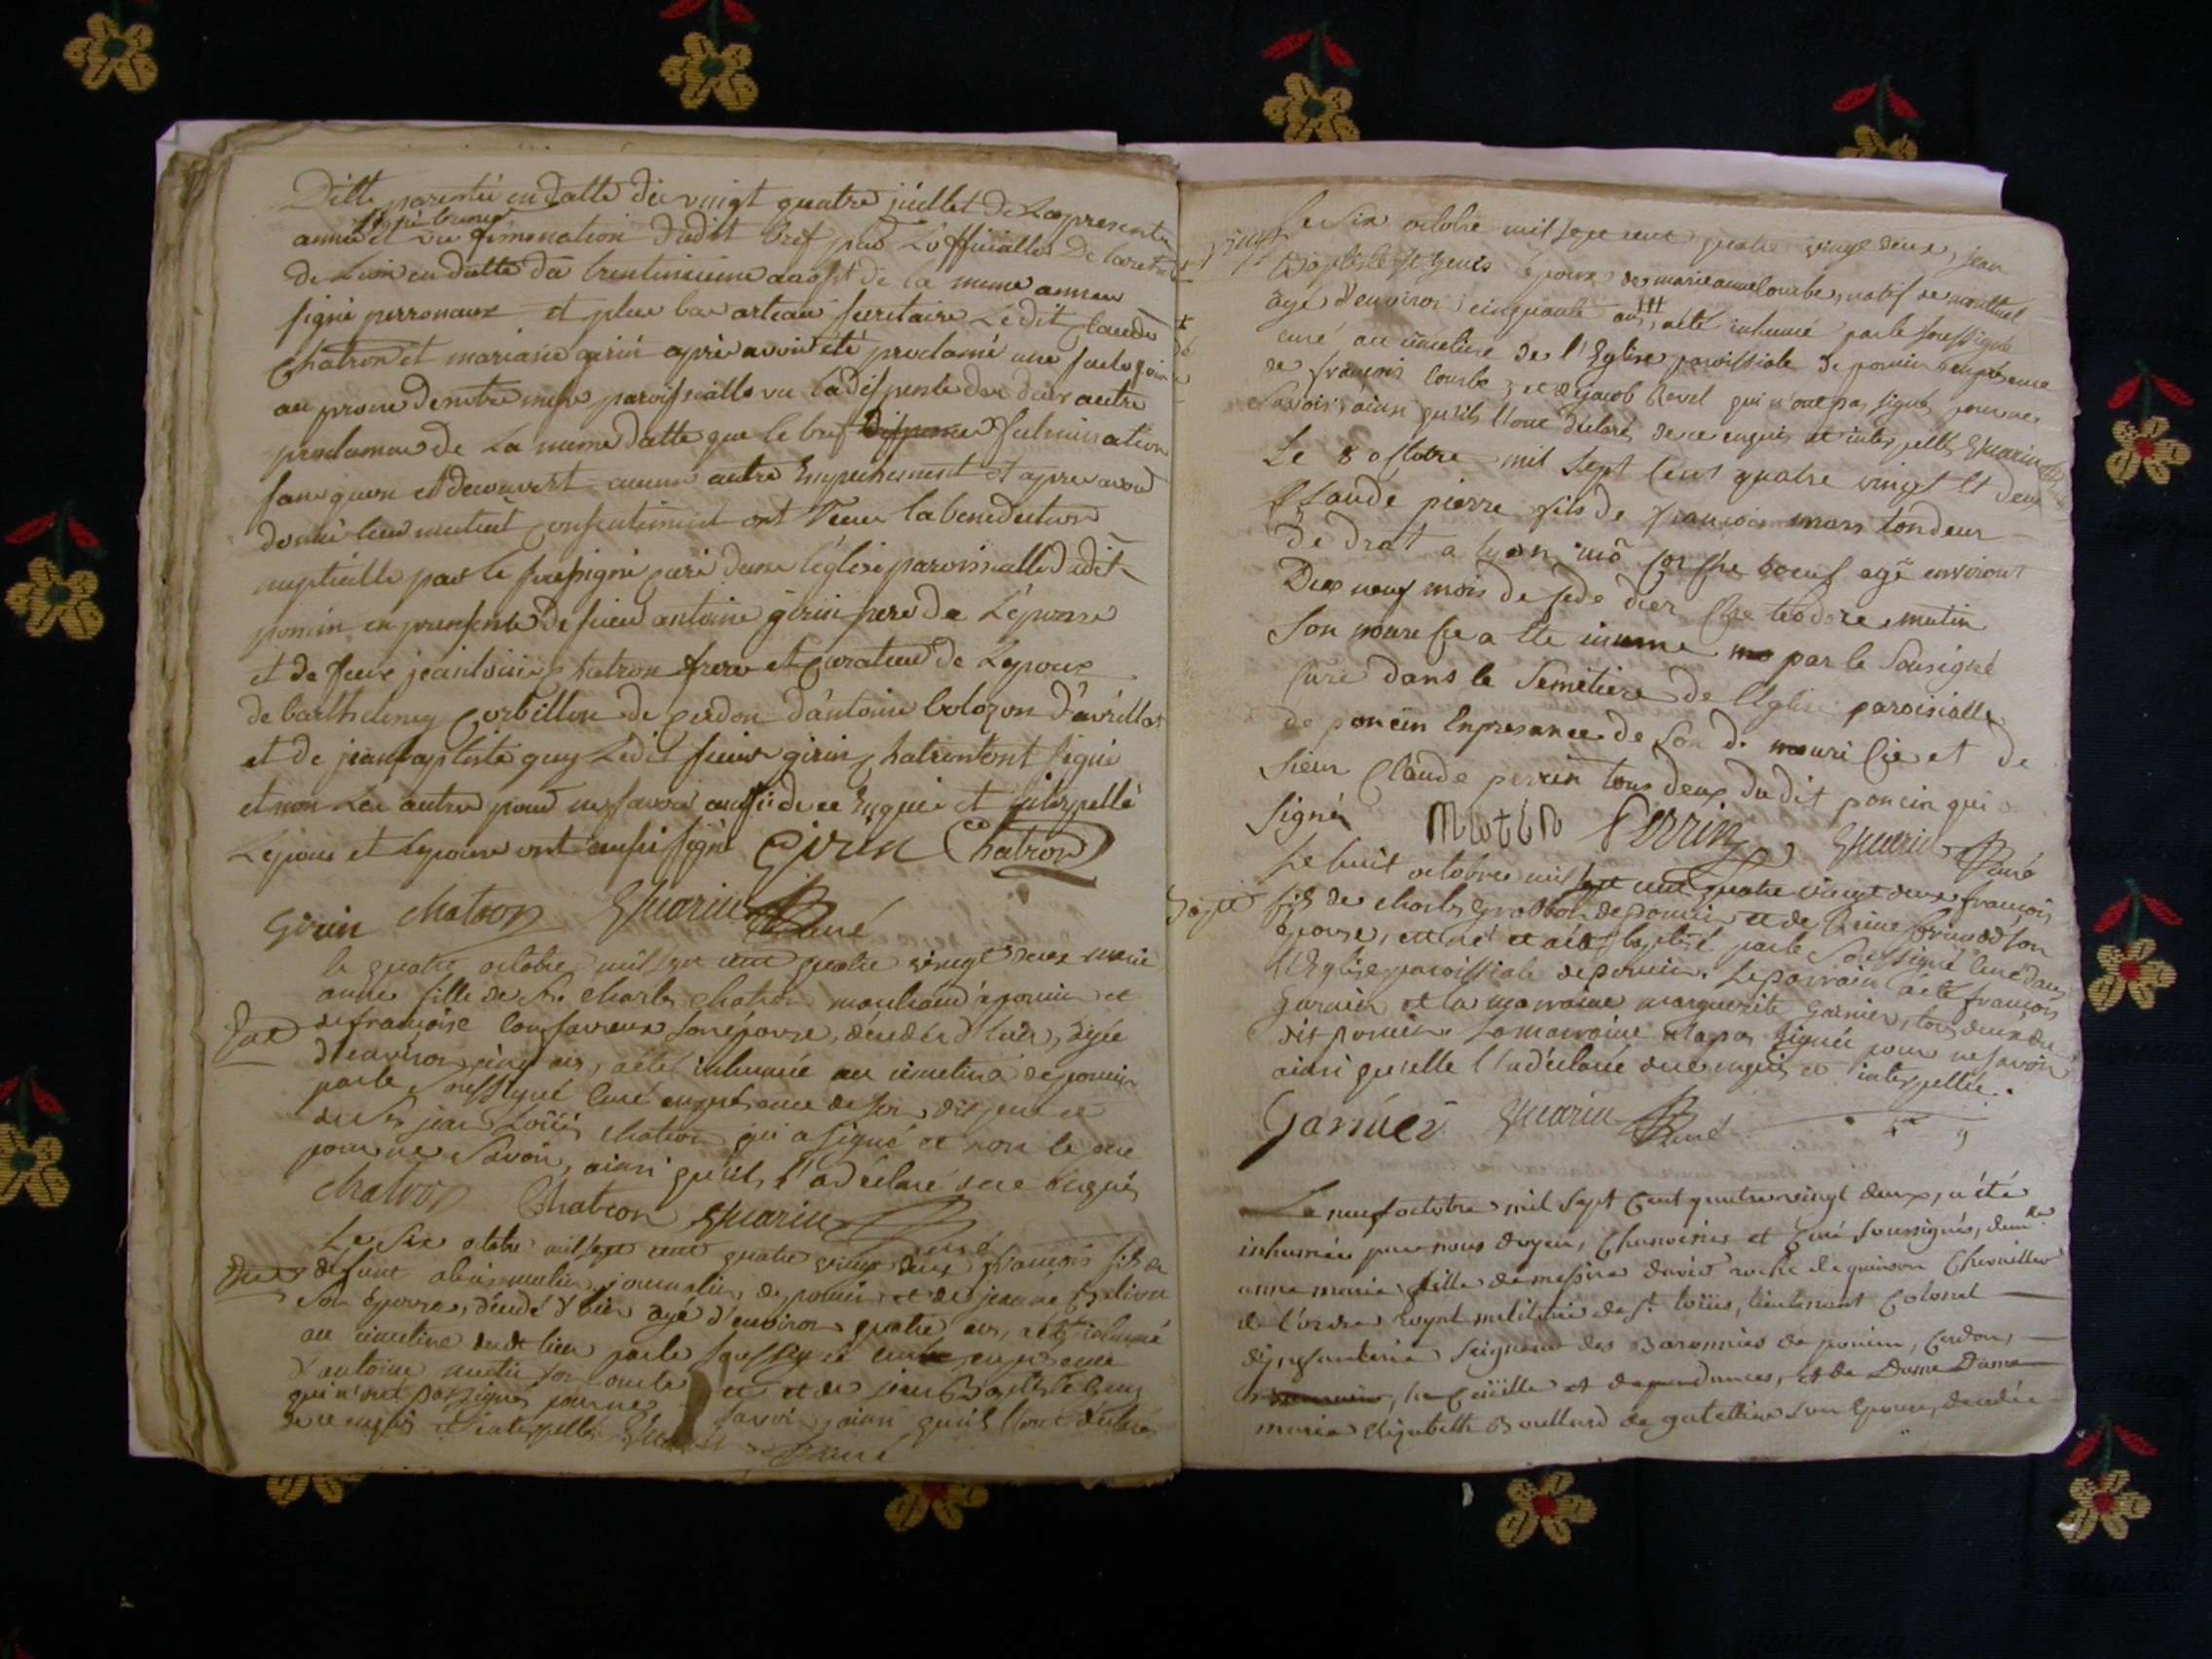 Ditte parenté en datte du vingt quatre juillet de La presente
année et vu fumination dudit bref par L'officialle De
de Lion en datte du trentunieme aoust de la meme annee
signé perronaux et plus bas arteau secretaire Ledit claude
Chatron et mariane girin apres avoir eté proclamé une seule fois
au prone de notre messe paroissialle vu la dispense des deux autre
proclames de La meme datte que le bref fulmination
sans quon et decouvert aucun autre Empechement et apres avoir
donné leur mutuel consentiment ont recu la benediction
nuptialle par le soussigné curé dans l'église paroissialle dudit
poncin en presence de sieur antoine girin pere de L'epouse
et de sieur jean louis chatron frere et curateur de Lepoux
de barthelemy Corbillon de cerdon d'antoine bolozon d'avrillat
et de jean baptiste guy Ledit sieur girin chatron ont signé
et non Les autre pour ne savoir aussi de ce Enquis et interpellé
Lepoux et Lepouse ont aussi signé Girin Chatron
Girin chatron Guarin Curé
le quatre octobre mil sept cent quatre vingt deux marie
anne fille de Sr. Charles chatron marchand à poncin et
de françoise son épouse, décédée d'hier, agée
d'environ cinq ans, a été inhumée au cimetiere de poncin
par le Soussigné Curé en présence de son dit pere et
du Sr. jean Loüis chatron qui a signé et non le pere
pour ne Savoir, ainsi qu'il l'a déclaré de ce Enquis
chatron Chatron Guarin
Curé
Le Six octobre mil sept cent quatre vingt deux françois fils de
défunt mutin, journalier, de poncin et de jeanne
Son Epouse, décédé d'hier agé d'environ quatre ans, a été inhumé
au cimetiere dudit lieu par le soussigné curé en présence
d'antoine mutin son oncle et de jean Baptiste
qui n'ont pas signés pour ne savoir, ainsi qu'ils l'ont déclaré
de ce enquis et interpellés Guarin Curé
Le Six octobre mil sept cent quatre vingt deux, jean
Baptiste St Genis époux de marie anne Courbe, natif de montluel
agé d'environ cinquante ans, a été inhumé par le soussigné
curé au cimetiere de l'Eglise paroissiale de poncin en présence
de françois Courbe, et de jacob Revel qui n'ont pas signés pour ne
Savoir, ainsi qu'ils l'ont déclaré de ce enquis et interpellés Guarin
Le 8 octobre mil sept cent quatre vingt et deux
Claude pierre fils de françois mars tondeur
De drat a lyon boeuf agé environt
Dix neuf mois desede dier Che teodore mutin
son nourisie a ete inume par le Sousigné
Curé dans le Semetiere de l'Eglise paroisialle
de poncin Enpresance de son d. nourisie et de
sieur Claude perrin tous deux du dit poncin qui
Signé Mutin Perrin Guarin Curé
Le huit octobre mil sept cent quatre vingt deux françois
fils de charles de poncin et de Reine son
épouse, est né et a été baptisé par le Soussigné Curé dans
l'Eglise paroissiale de poncin. Le parrain a été françois
Garnier et la marraine marguerite Garnier, tous deux du
dit poncin. La marraine n'a pas signée pour ne savoir
ainsi qu'elle l'a déclarée de ce enquis et interpellée.
Garnier Guarin Curé
Le neuf octobre mil sept Cent quatre vingt deux, a été
inhumée par nous doyen, Chanoines et Curé soussignés, demlle.
anne marie fille de messire david roche de quinson Chevallier
de l'ordre royal militaire de St. Loüis, lieutenant Colonel
d'infanterie Seigneur des Baronnies de poncin, Cerdon,
la Cüeille et dependances, et de Dame Dame
marie elizabethe Boullard de gatellier son Epouse, decedée